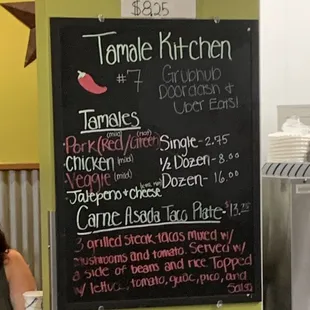 $8.25
Tamale Kitchen
#7
Grubhub
Doordash &
Uber Eats!
Tamales
-Pork (Red/Green) (mild) (hot)
-Chicken (mild)
-Veggie (mild)
-Jalepeno & cheese
Single - 2.75
½ Dozen - 8.00
Dozen - 16.00
Carne Asada Taco Plate - $13.25
3 grilled steak tacos mixed w/
mushrooms and tomato. Served w/
a side of beans and rice. Topped
w/ lettuce, tomato, guac, pico, and
Salsa